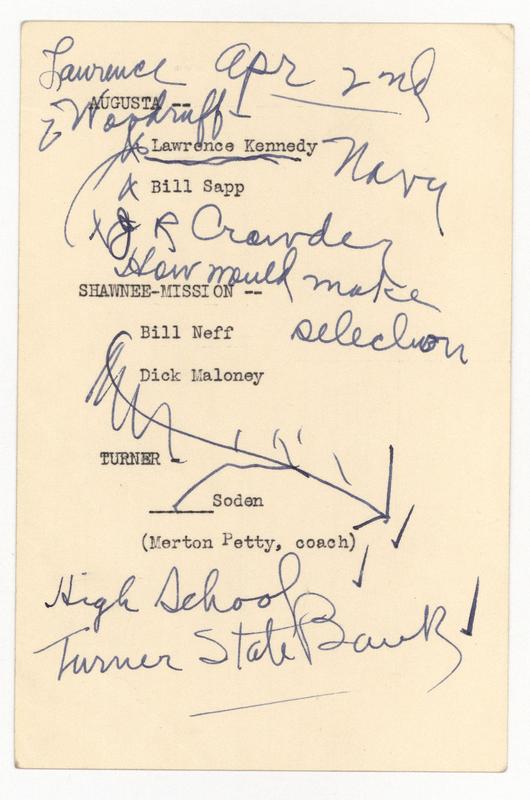 Lawrence Apr 2nd
AUGUSTA --
& Woodruff -
x Lawrence Kennedy Navy
x Bill Sapp
x J R Crowder
How would make
SHAWNEE-MISSION --
selection
Bill Neff
Dick Maloney
TURNER -
______ Soden
(Merton Petty, coach)
High School
Turner State Bank